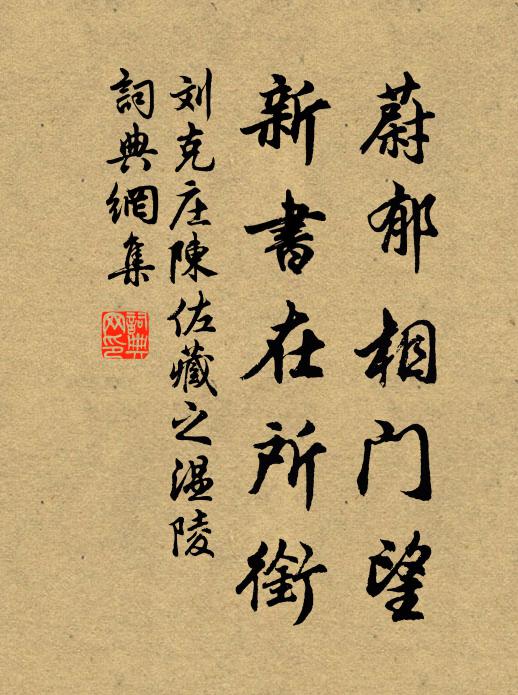 蔚郁相门望
新書在所銜
刘克庄陳佐藏之温陵
詞典網集
詞典网印